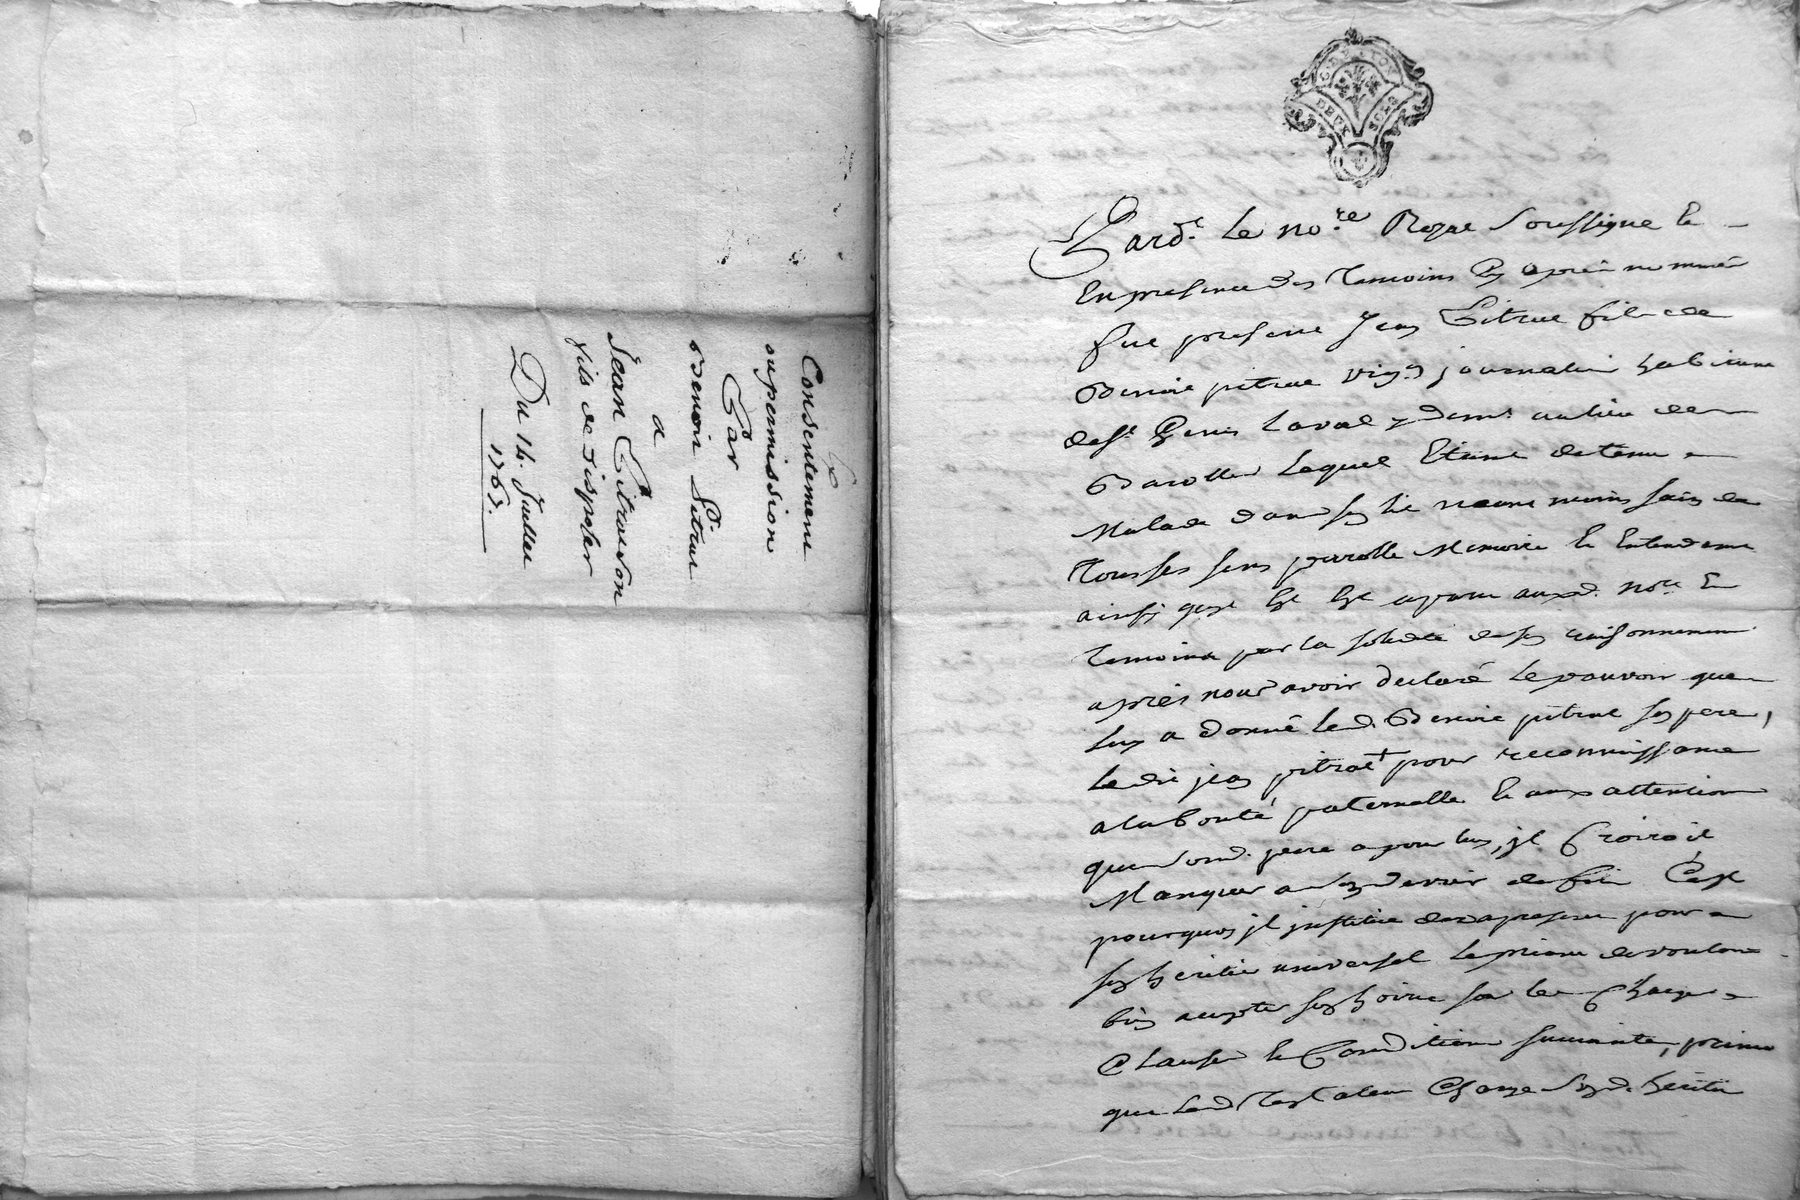 Consentement
ou permission
Par
Benoit Pitrat
a
Jean Pitrat son
fils de disposer
Du 14. Juillet
1765.
G. DE LYON
DEUX SOLS
Pard.t Le no.re Royal soussigné Et
En presence des Temoins Cy apres nommés
fut present Jean Pitrat fils de
Benoit pitrat vig.on journalier habitant
de st. Genis Laval y dem.t au lieu de
Barolles Lequel Etant detenu
Malade dans son lit neant moins sain de
Tous ses sens parolle Memoire Et Entendement
ainsy qu'il Est aparu aud. no.re Et
Temoins par la solidité de ses raisonnement
apres nous avoir declaré Le pouvoir que
luy a donné led. Benoit pitrat son pere,
Ledit jean pitrat pour reconnoissance
a la bonté paternelle Et aux attention
que sond. pere a pour luy, il Croiroit
Manquer a son devoir de fils C'est
pourquoy il institue des apresent pour
son heritier universel Le priant de vouloir
bien accepter son hoirie sous les Charges
Clauses Et Conditions suivantes, primo
que Led. Testateur Charge sond. heritier